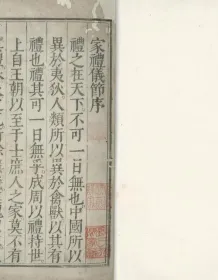 家禮儀節序
禮之在天下不可一日無也中國所以
異於夷狄人類所以異於禽獸以其有
禮也禮其可一日無乎成周以禮持世
上自王朝以至于士庶人之家莫不有